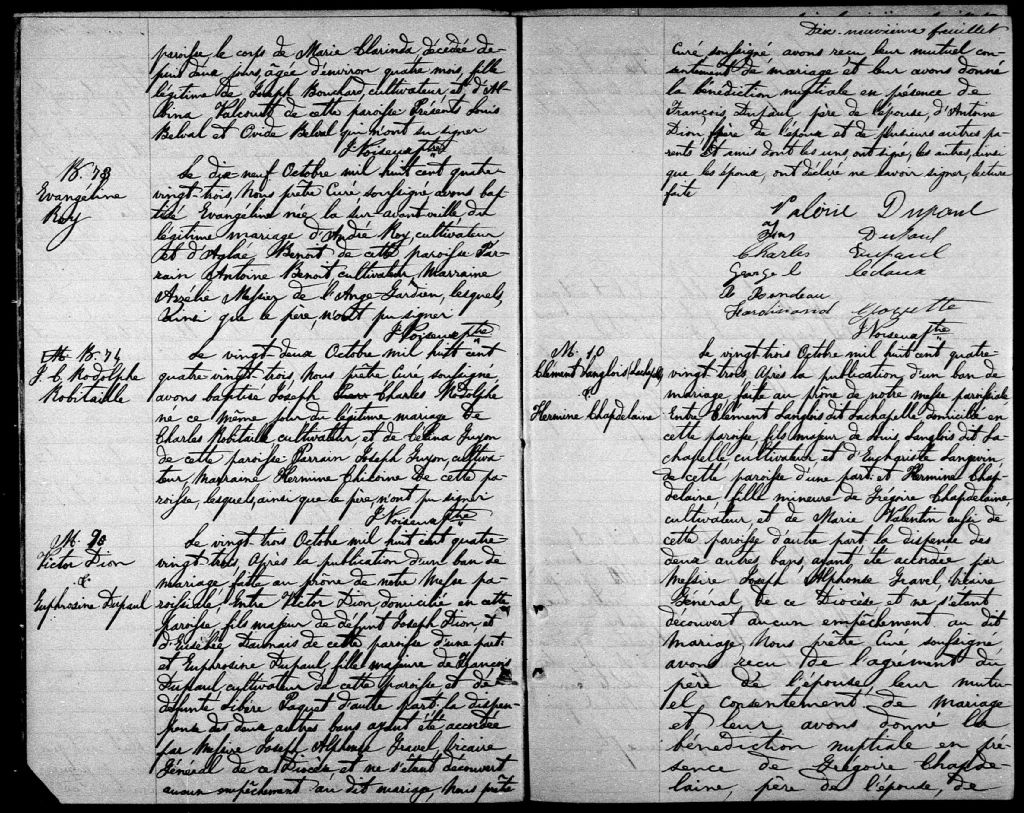 paroisse le corps de Marie Clarinda décédée de-
puis deux jours, âgée d'environ quatre mois, fille
légitime de Joseph Bouchard, cultivateur, et d'Al-
bina Valcourt de cette paroisse Présents Louis
Belval et Ovide Belval qui n'ont su signer
J Noiseux ptre
B. 73
Evangéline
Roy
Le dix neuf Octobre mil huit cent quatre
vingt-trois, Nous prêtre Curé, soussigné avons bap-
tisé Evangéline née la sur-avant-veille du
légitime mariage d'André Roy, cultivateur
et d'Aglaé Benoit de cette paroisse Par-
rain Antoine Benoit, cultivateur, Marraine
Azélie Messier de l'Ange-Gardien, lesquels,
ainsi que le père, n'ont pu signer
J Noiseux ptre
B. 74
J. C. Rodolphe
Robitaille
Le vingt-deux Octobre mil huit cent
quatre vingt trois Nous prêtre Curé soussigné
avons baptisé Joseph Charles Rodolphe
né ce même jour du légitime mariage de
Charles Robitaille cultivateur, et de Zélina Guyon
de cette paroisse Parrain Joseph Guyon, cultiva-
teur, Marraine Hermine de cette pa-
roisse, lesquels, ainsi que le père, n'ont pu signer
J Noiseux ptre
M. 90
Victor Dion
&
Euphrosine Dupaul
Le vingt trois Octobre mil huit cent quatre
vingt trois, Après la publication d'un ban de
mariage faite au prône de notre Messe pa-
roissiale, Entre Victor Dion, domicilié en cette
paroisse, fils majeur de défunt Joseph Dion, et
d'Eusébée Daunais de cette paroisse d'une part:
et Euphrosine Dupaul, fille majeure de François
Dupaul, cultivateur de cette paroisse, et de
défunte Libère Paquet d'autre part: la dispen-
se des deux autres bans ayant été accordée
par Messire Joseph Alphonse Gravel, Vicaire
Général de ce Diocèse, et ne s'étant découvert
aucun empêchement au dit mariage, Nous prêtre
Dix neuvième feuillet
Curé soussigné avons reçu leur mutuel con-
sentement de mariage et leur avons donné
la bénédiction nuptiale en présence de
François Dupaul père de l'épouse, d'Antoine
Dion, frère de l'époux et de plusieurs autres pa-
rents et amis dont les uns ont signé, les autres, ainsi
que les époux, ont déclaré ne savoir signer, lecture
faite
Valérie Dupaul
Dupaul
Charles Dupaul
George L Ledoux
A Rondeau
Ferdinand Choquette
J Noiseux ptre
M. 10
Clément Langlois/Lachapelle
&
Hermine Chapdelaine
Le vingt trois Octobre mil huit cent quatre-
vingt trois Après la publication d'un ban de
mariage, faite au prône de notre messe paroissiale
Entre Clément Langlois dit Lachapelle domicilié en
cette paroisse, fils majeur de Louis, Langlois dit La-
chapelle cultivateur et d'Euphrosine Sansoucy
de cette paroisse d'une part et Hermine Chap-
delaine fille mineure de Grégoire Chapdelaine
cultivateur, et de Marie Valentin aussi de
cette paroisse d'autre part la dispense des
deux autres bans, ayant été accordée par
Messire Joseph Alphonse Gravel Vicaire
Général de ce Diocèse et ne s'étant
découvert aucun empêchement au dit
mariage, Nous prêtre Curé soussigné
avons reçu de l'agrément du
père de l'épouse leur mutu-
el consentement de mariage
et leur avons donné la
bénédiction nuptiale en pré-
sence de Grégoire Chapde-
laine, père de l'épouse, de